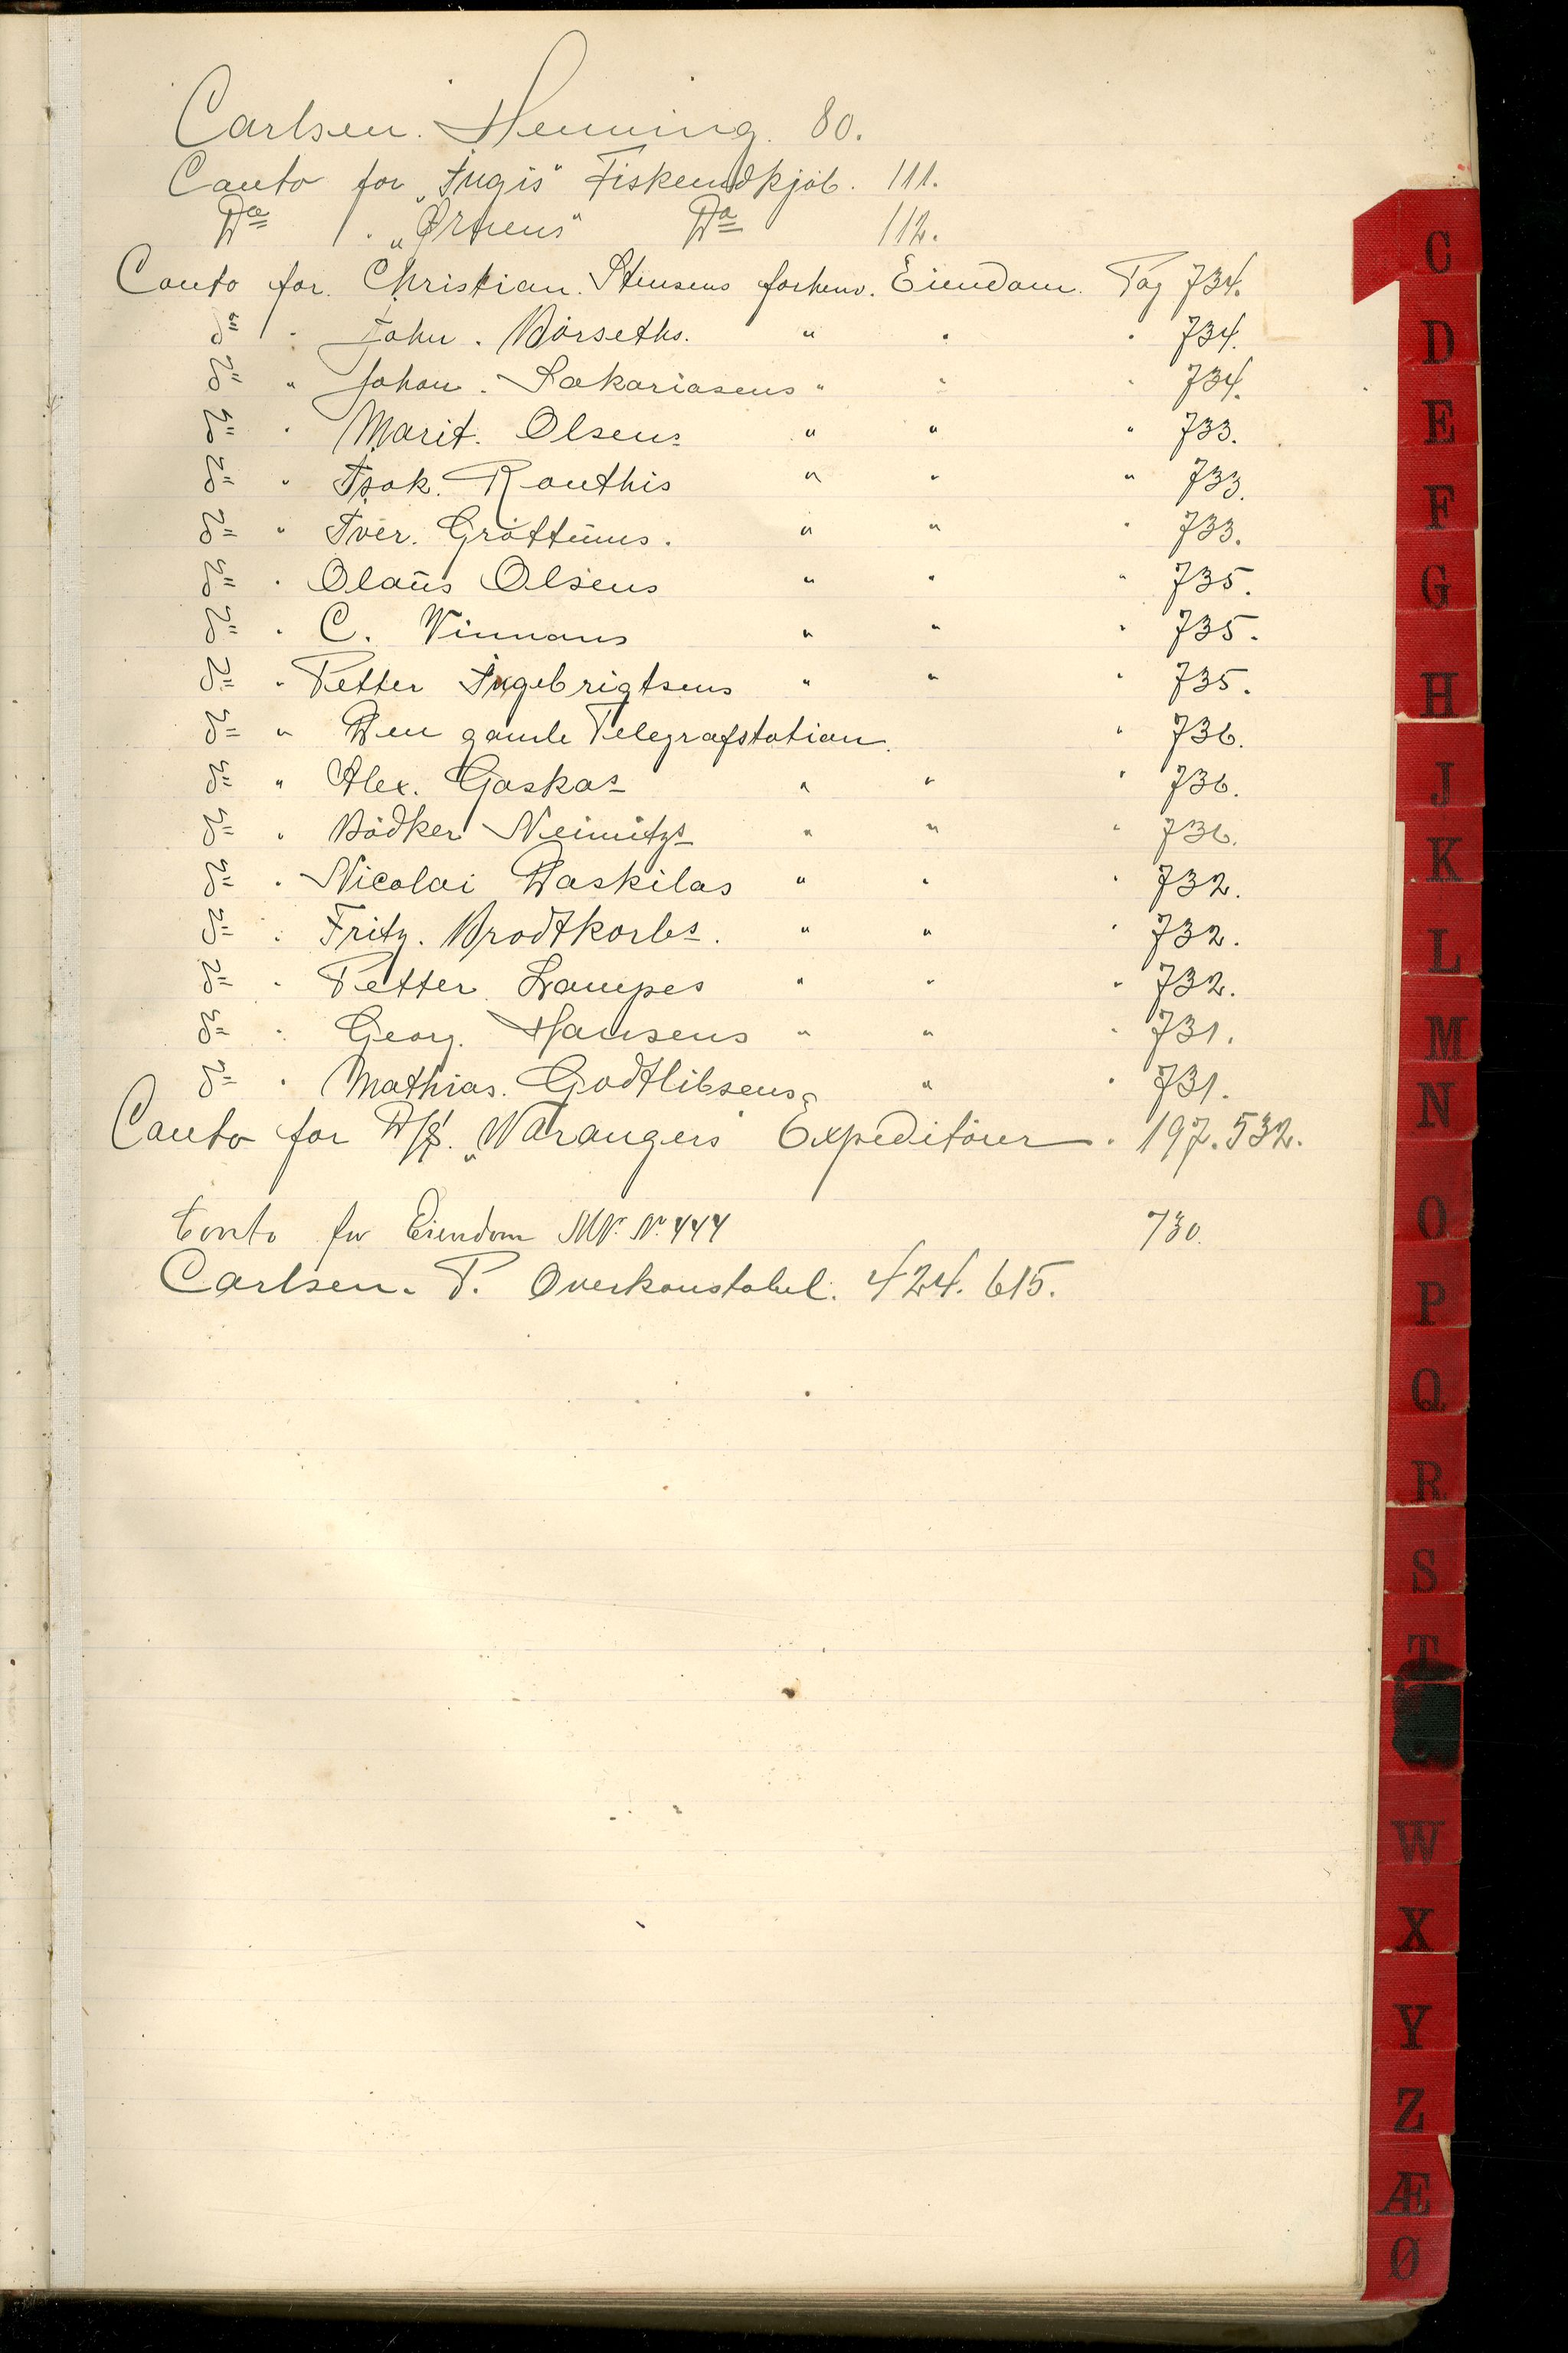 Carlsen. Henning. 80.
Conto for „Ingis" Fiskeindkjøb. 111.
Do „Ørnens" Do 112.
Conto for Christian Stensens forhenv. Eiendom. Pag 734.
Do " John. Börseths. " " " 734.
Do " Johan. Sakariasens " " " 734.
Do " Marit. Olsens " " " 733.
Do " Isak. Rauthis " " " 733.
Do " Iver. Gröttums. " " " 733.
Do " Olaus Olsens " " " 735.
Do " C. Winmans " " " 735.
Do " Petter Ingebrigtsens " " " 735.
Do " Den gamle Telegrafstation. " 736.
Do " Alex. Gaskas " " " 736.
Do " Bödker Neimitzs " " " 736.
Do " Nicolai Daskilas " " " 732.
Do " Fritz. Brodtkorbs. " " " 732.
Do " Petter Lampes " " " 732.
Do " Georg. Hansens " " " 731.
Do " Mathias. Godtlibsens " " " 731.
Conto for D/S. „Varangers" Expeditører. 197. 532.
Conto for Eiendom MN. N. 444 730.
Carlsen. P. Overkonstabel. 424. 615.
C
D
E
F
G
H
J
K
L
M
N
O
P
Q
R
S
T
W
X
Y
Z
Æ
Ø